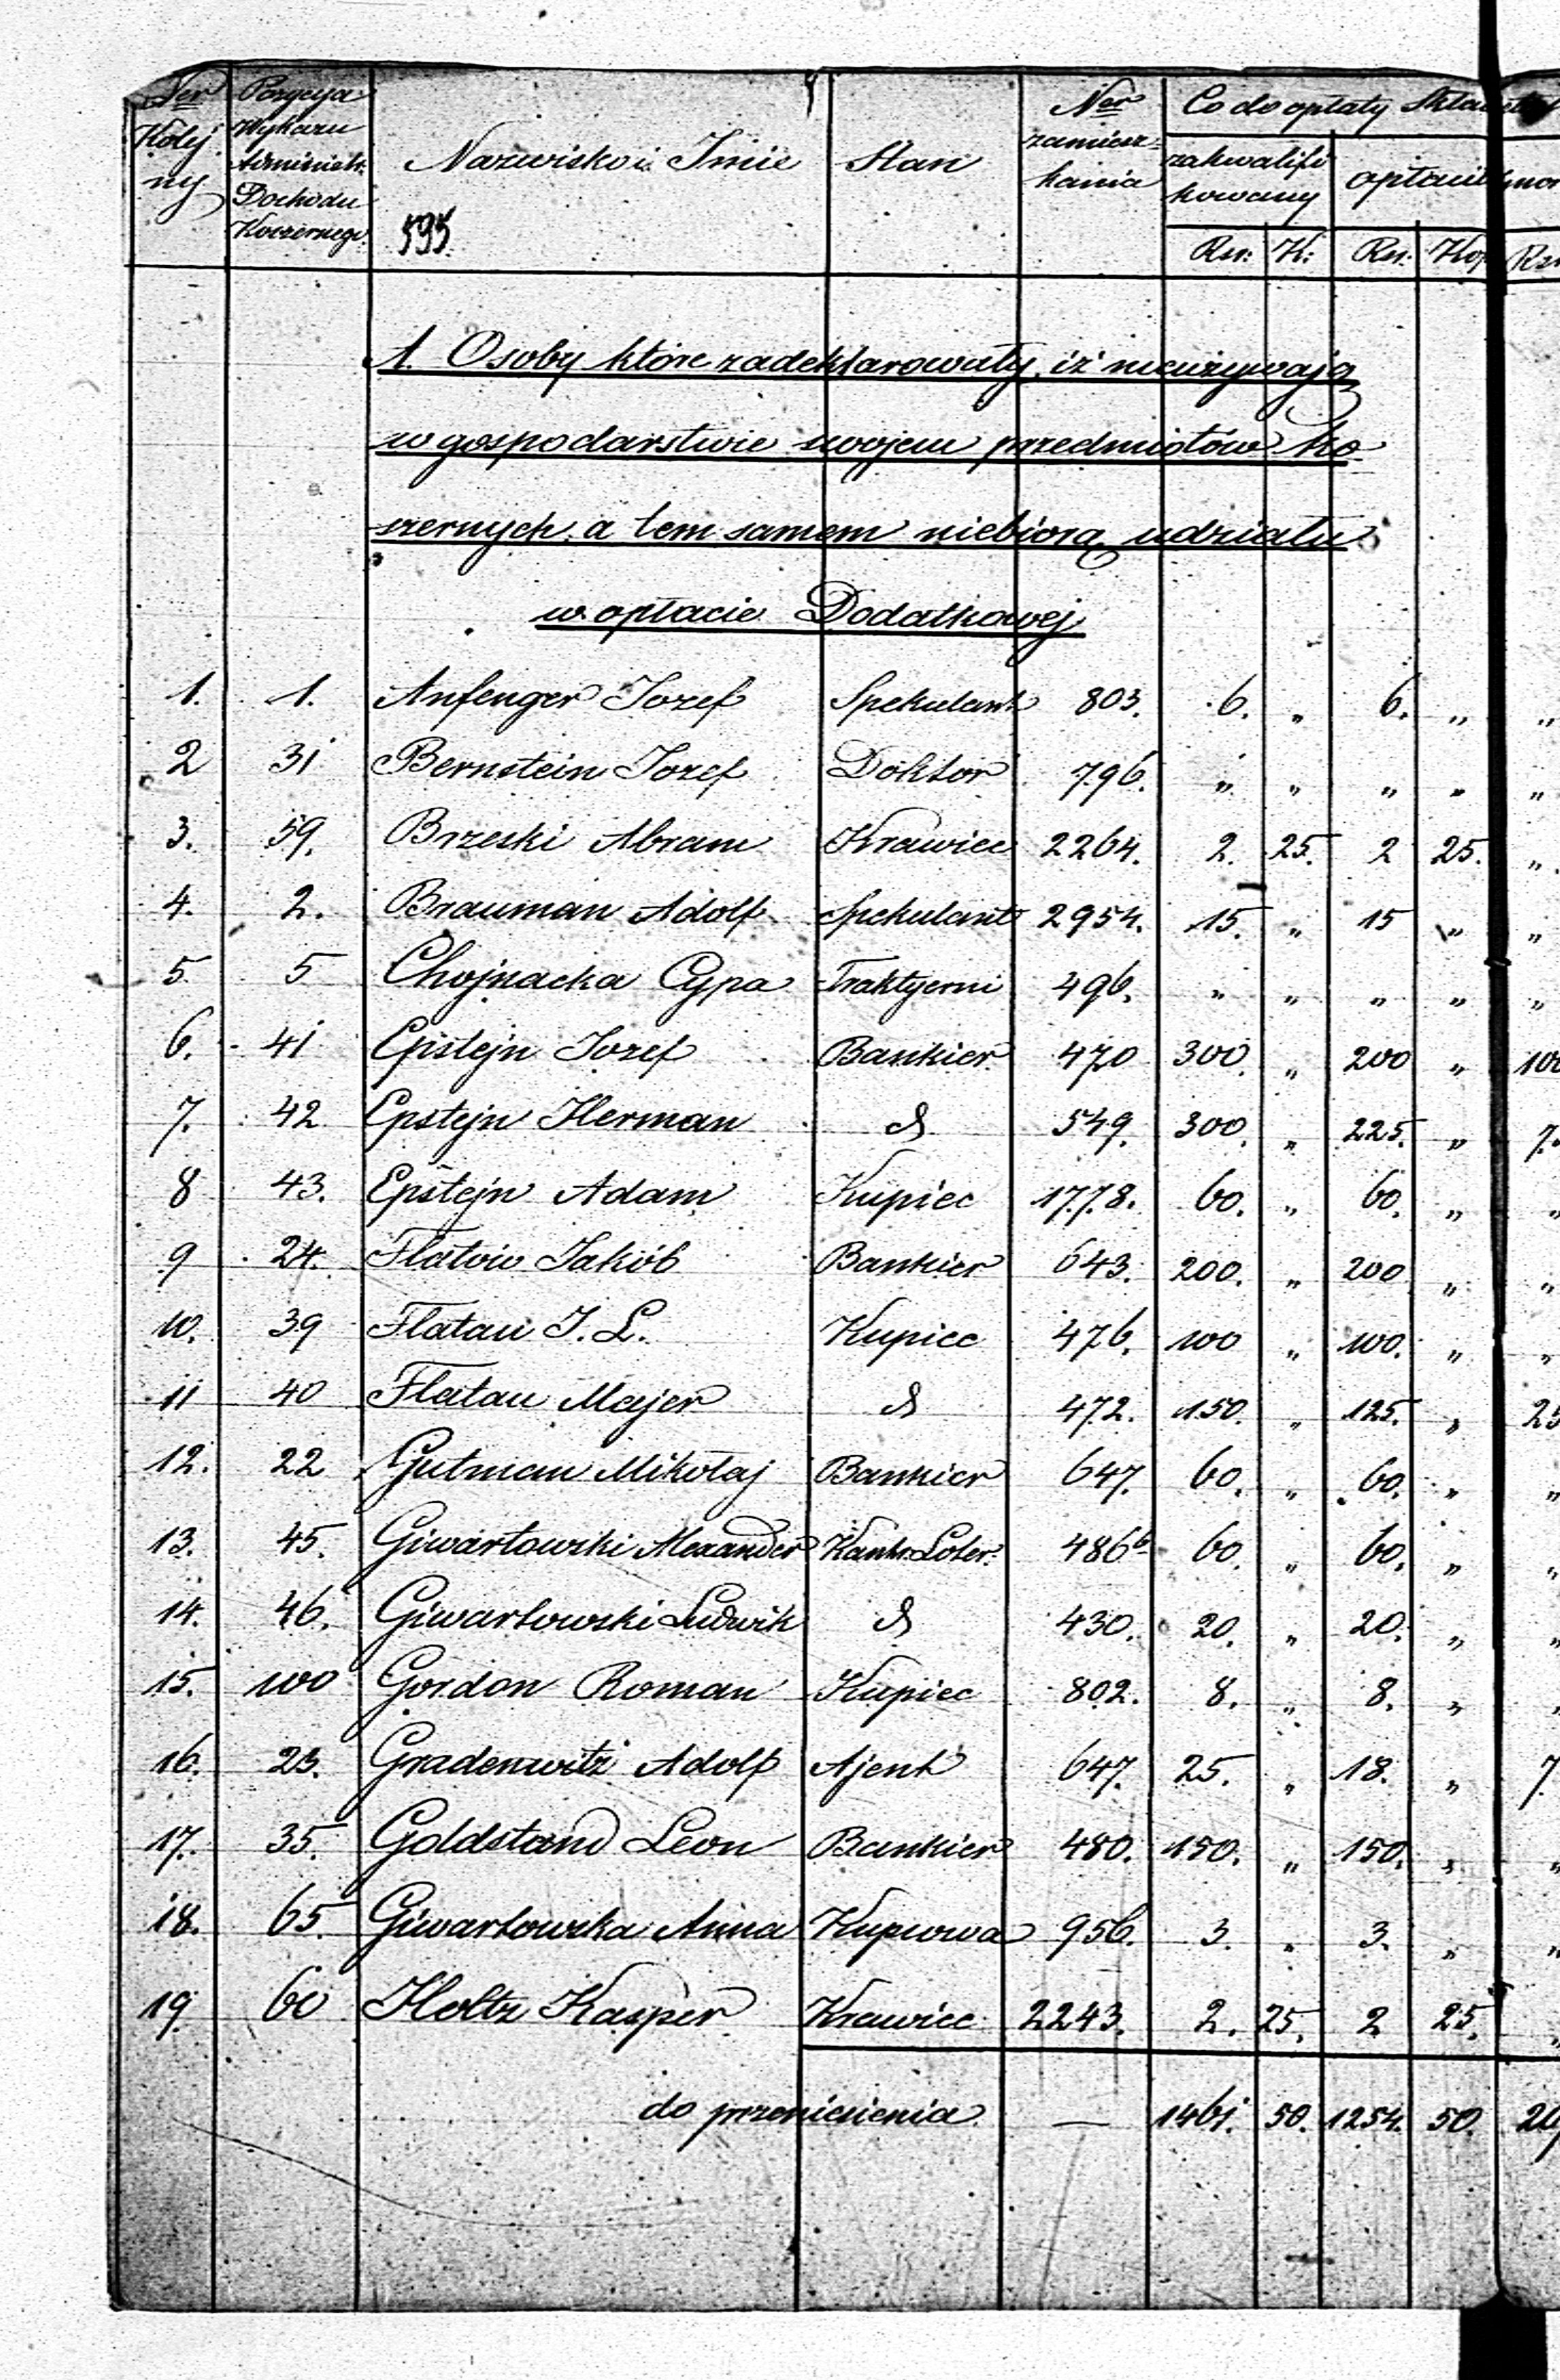 Ner Kolej ny | Pozycya Wykazu Administr. Dochodu Koszernego | Nazwisko i Imie | Stan | Ner zamiesz- kania | Co do opłaty
zakwalifi kowany
Rsr: K: Rsr: Kop
595
A. Osoby które zadeklarowały, iż nieużywają
w gospodarstwie swojem przedmiotów ko
szernych, a tem samem niebiorą udziału
w opłacie Dodatkowej
1. 1. Anfenger Jozef Spekulant 803. 6. „ 6. „ „
2 31 Bernstein Jozef Doktor 796. „ „ „ „ „
3. 59. Brzeski Abram Krawiec 2264. 2. 25. 2 25. „
4. 2. Brauman Adolf Spekulant 2954. 15. „ 15 „ „
5. 5 Chojnacka Cypa Traktyerni 496. „ „ „ „ „
6. 41 Epstejn Jozef Bankier 470 300. „ 200 „ 100
7. 42 Epstejn Herman d 549. 300. „ 225. „ 7
8 43. Epstejn Adam Kupiec 1778. 60. „ 60. „ „
9 24. Flatow Jakób Bankier 643. 200. „ 200 „ „
10. 39 Flatau J. L. Kupiec 476. 100 „ 100. „ „
11 40 Flatau Majer d 472. 150. „ 125. „ 25
12. 22 Gutman Mikołaj Bankier 647. 60. „ 60. „ „
13. 45. Giwartowski Alexander Kantr. Loter. 486b 60. „ 60. „ „
14. 46. Giwartowski Ludwik d 430. 20. „ 20. „ „
15. 100 Gordon Roman Kupiec 802. 8. „ 8. „ „
16. 23. Gradenwitz Adolf Ajent 647. 25. „ 18. „ 7
17. 35. Goldstand Leon Bankier 480. 150. „ 150. „ „
18. 65. Giwartowska Anna Kupcowa 956. 3. „ 3. „ „
19. 60 Holtz Kasper Krawiec 2243. 2. 25. 2 25. „
do przeniesienia — 1461. 50. 1254. 50.